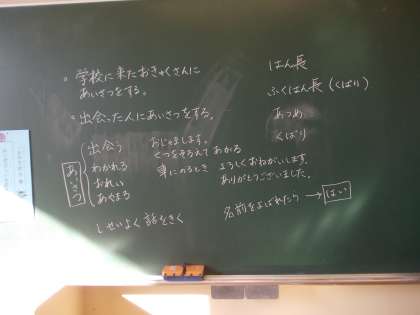 。学校に来たおきゃくさんに
あいさつをする。
。出会った人にあいさつをする。
あいさつ
出会う
わかれる
おれい
あやまる
おじゃまします。
くつをそろえてあがる
車にのるとき よろしくおねがいします。
ありがとうございました。
しせいよく話をきく
はん長
ふくはん長(くばり)
あつめ
くばり
名前をよばれたら→はい